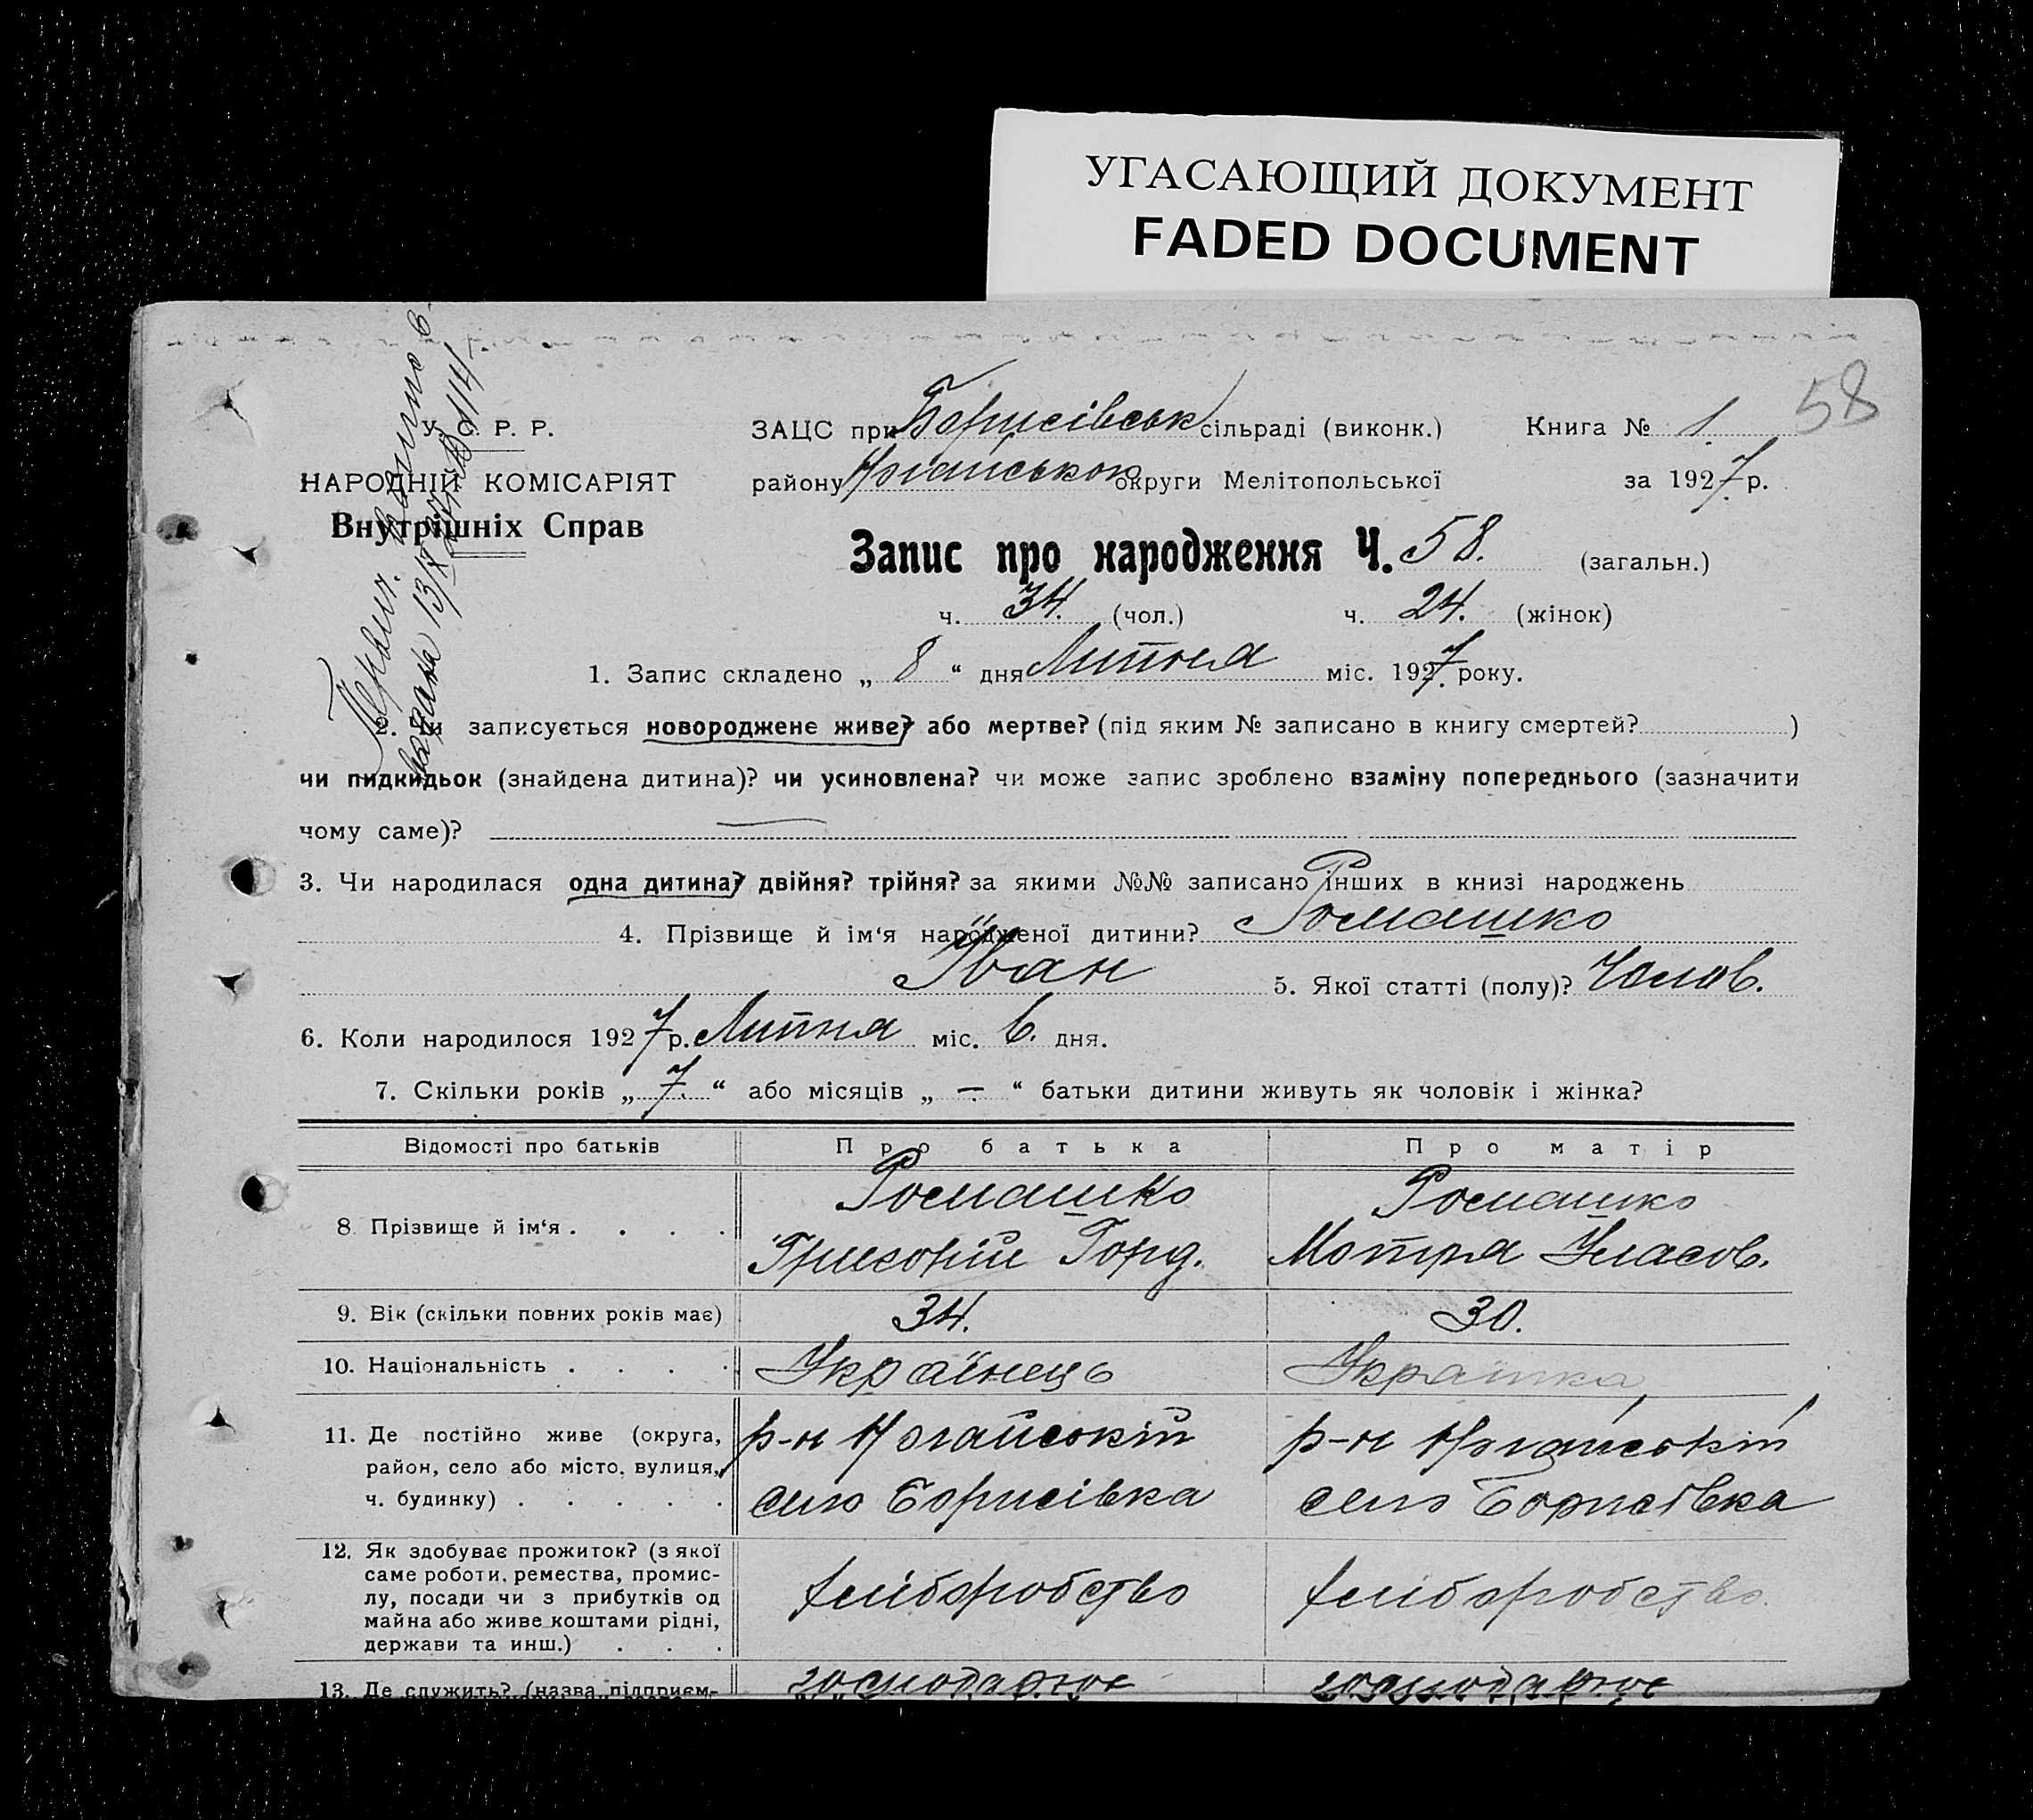 УГАСАЮЩИЙ ДОКУМЕНТ
FADED DOCUMENT
58
У. С. Р. Р.
НАРОДНІЙ КОМІСАРІЯТ
Внутрішніх Справ
ЗАЦС при Борисівськ сільраді (виконк.) Книга № 1.
району Ногайського округи Мелітопольської за 1927 р.
Запис про народження Ч. 58. (загальн.)
ч. 34. (чол.) ч. 24. (жінок)
1. Запис складено „ 8 “ дня Липня міс. 1927 року.
2. Чи записується новороджене живе? або мертве? (під яким № записано в книгу смертей? )
чи пидкидьок (знайдена дитина)? чи усиновлена? чи може запис зроблено взаміну попереднього (зазначити
чому саме)?
3. Чи народилася одна дитина? двійня? трійня? за якими №№ записано інших в книзі народжень
4. Прізвище й ім‘я народженої дитини? Ромашко
Іван 5. Якої статті (полу)? Чолов.
6. Коли народилося 1927 р. Липня міс. 6. дня.
7. Скільки років „ 7. “ або місяців „ — “ батьки дитини живуть як чоловік і жінка?
Відомості про батьків Про батька Про матір
8. Прізвище й ім‘я . . . . Ромашко Ромашко
Григорій Горд. Мотря Уласов.
9. Вік (скільки повних років має) 34. 30.
10. Національність . . . . Українець Українка
11. Де постійно живе (округа, район, село або місто, вулиця, ч. будинку) . . . . .
р-н Ногайській р-н Ногайській
село Борисівка село Борисівка
12. Як здобуває прожиток? (з якої саме роботи, ремества, промислу, посади чи з прибутків од майна або живе коштами рідні, держави та инш.) . . .
хліборобство хліборобство
13. Де служить? (назва підприєм- господарює господарює